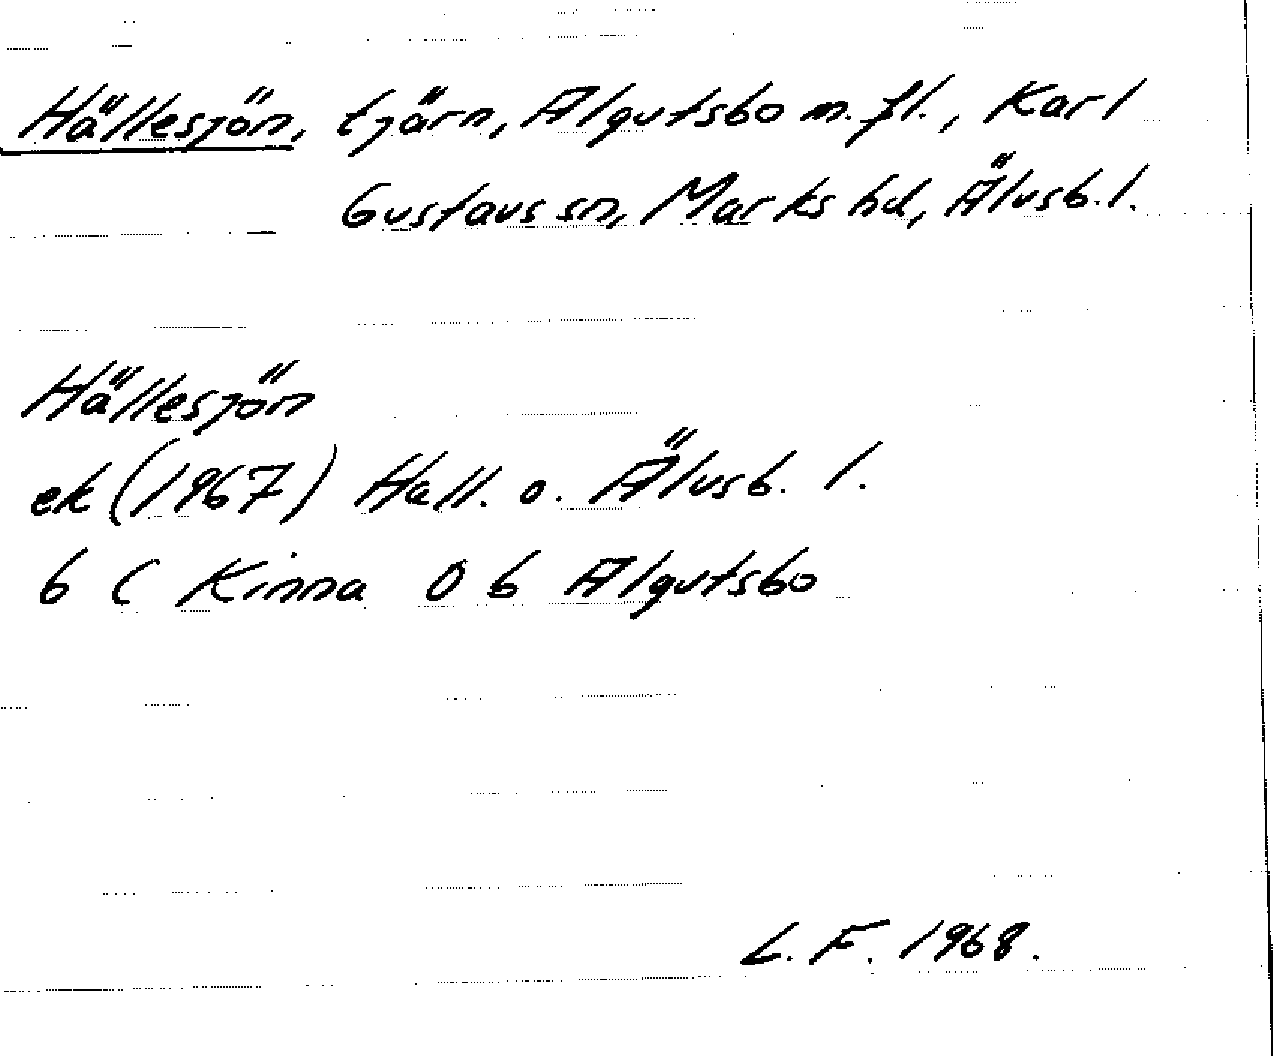 Hällesjön, tjärn, Algutsbo m. fl., Karl
Gustavs sn, Marks hd, Älvsb. l.
Hällesjön
ek (1967) Hall. o. Älvsb. l.
6 C Kinna 0 6 Algutsbo
L. F. 1968.